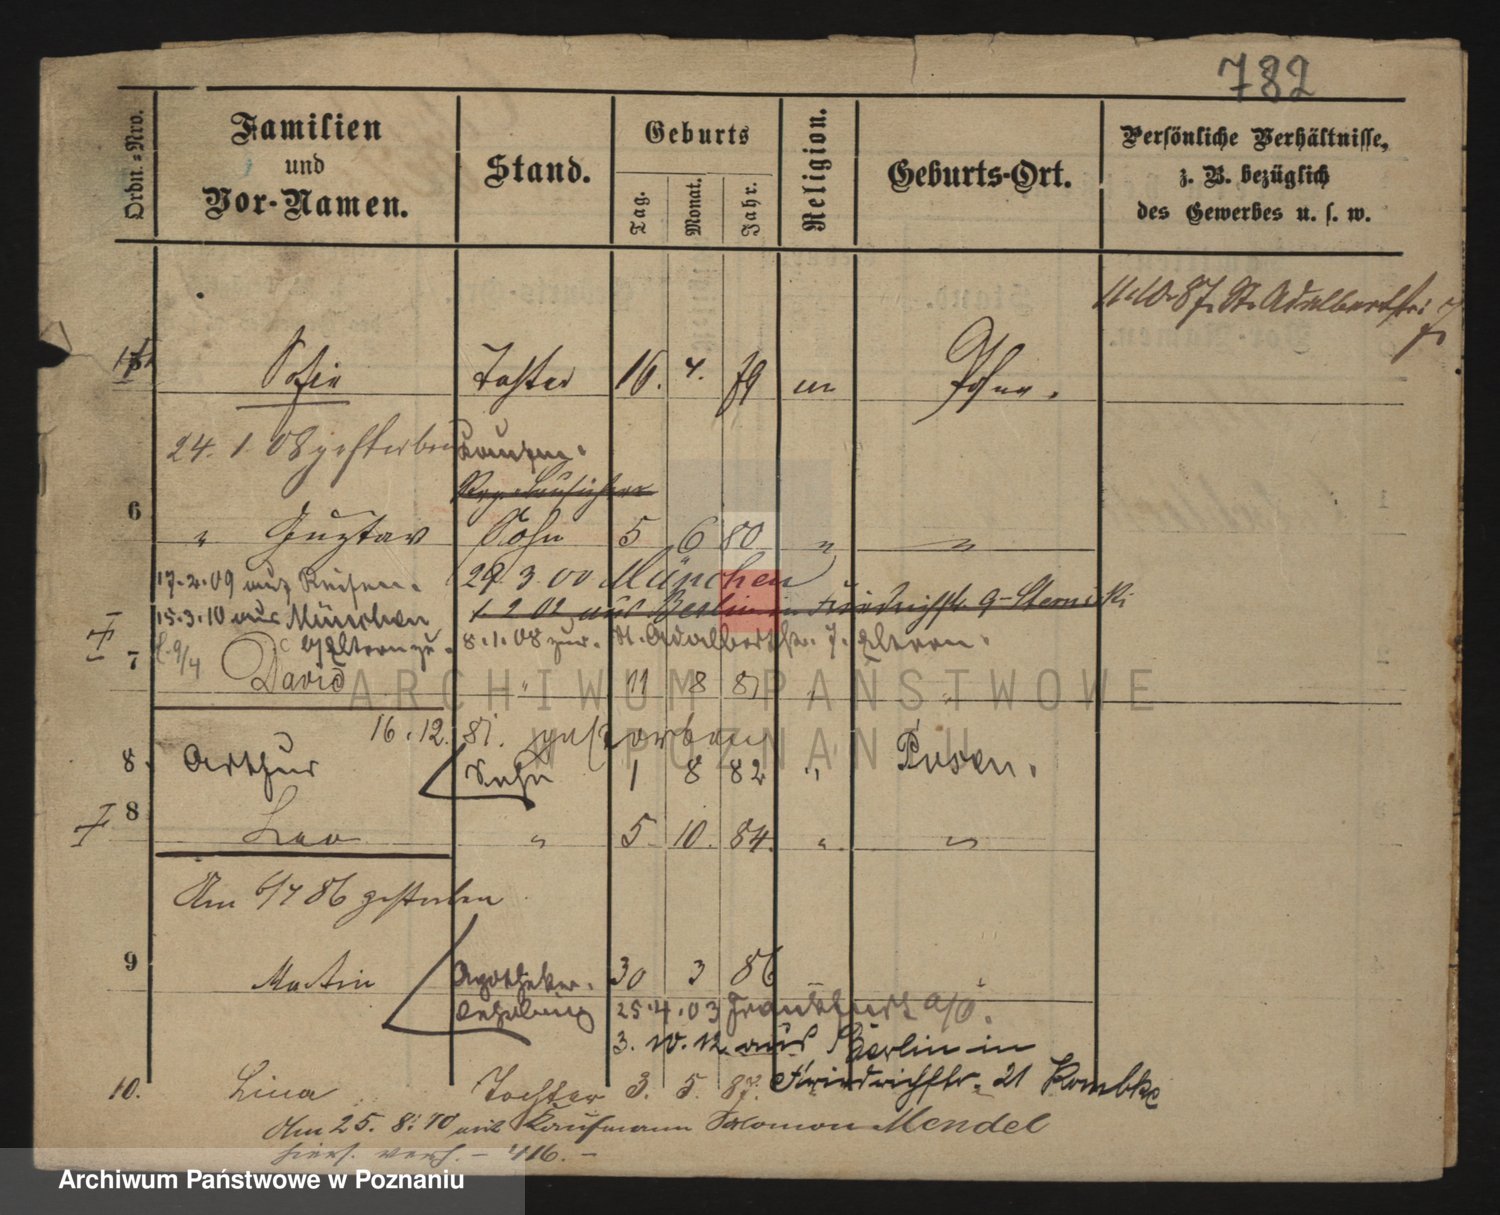 782
Ordn.-Nro.
Familien
und
Vor-Namen.
Stand.
Geburts
Tag.
Monat.
Jahr.
Religion.
Geburts-Ort.
Persönliche Verhältnisse,
z. B. bezüglich
des Gewerbes u. s. w.
11.10.87. St. Adalbertstr. 7
Tochter 16. 4. 79 m Posen.
24. 1. 08 gestorben
6 " Gustav Sohn 5 6 80 " "
17.2.09 aus
29. 3. 00 München
15.3.10 aus München
1 2 02 aus Berlin in 9
b/Eltern zu. 8.1.08 zur. St. Adalbertstr. 7. Eltern.
7 David " 11 8 81
16. 12. 81. gestorben
8. Arthur Sohn 1 8 82 " Posen.
8 Leo " 5. 10. 84. " "
Am 6/7 86 gestorben
9 Martin Apotheker- 30 3 86
25.4.03 Frankfurt a/O.
3. 10. 12. aus Berlin in
Friedrichstr. 21
10. Lina Tochter 3. 5. 87.
Am 25. 8. 10 mit Kaufmann Salomon Mendel
hier. verh. - 416. -
ARCHIWUM PAŃSTWOWE
W POZNANIU
Archiwum Państwowe w Poznaniu